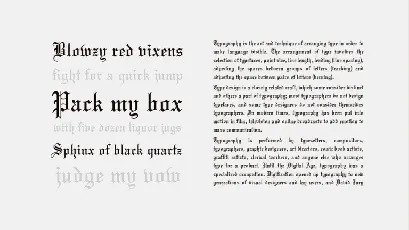 Blowzy red vixens
fight for a quick jump
Pack my box
with five dozen liquor jugs
Sphinx of black quartz
judge my vow
Typography is the art and technique of arranging type in order to
make language visible. The arrangement of type involves the
selection of typefaces, point size, line length, leading (line-spacing),
adjusting the spaces between groups of letters (tracking) and
adjusting the space between pairs of letters (kerning).
Type design is a closely related craft, which some consider distinct
and others a part of typography; most typographers do not design
typefaces, and some type designers do not consider themselves
typographers. In modern times, typography has been put into
motion in film, television and online broadcasts to add emotion to
mass communication.
Typography is performed by typesetters, compositors,
typographers, graphic designers, art directors, comic book artists,
graffiti artists, clerical workers, and anyone else who arranges
type for a product. Until the Digital Age, typography was a
specialized occupation. Digitization opened up typography to new
generations of visual designers and lay users, and David Jury